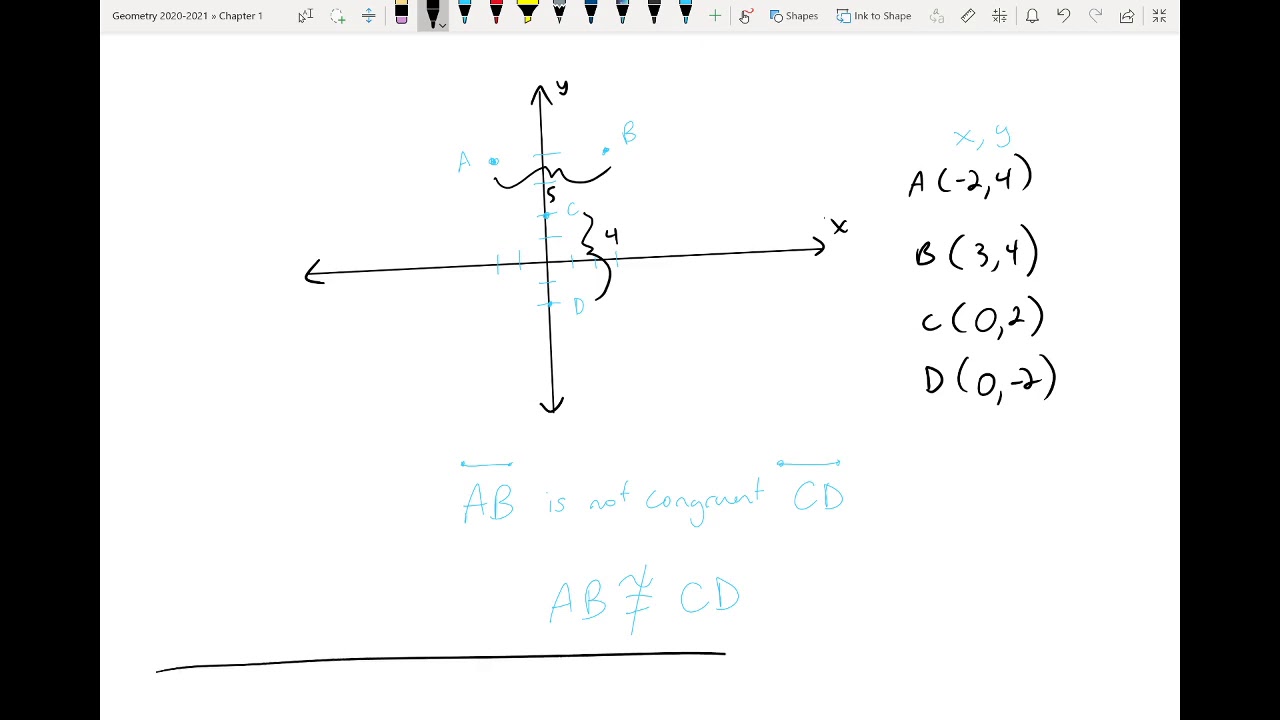 Geometry 2020-2021 » Chapter 1
Shapes
Ink to Shape
y
B
A
x, y
A(-2,4)
5
C
4
x
B(3,4)
C(0,2)
D
D(0,-2)
AB is not congruent CD
AB ≇ CD